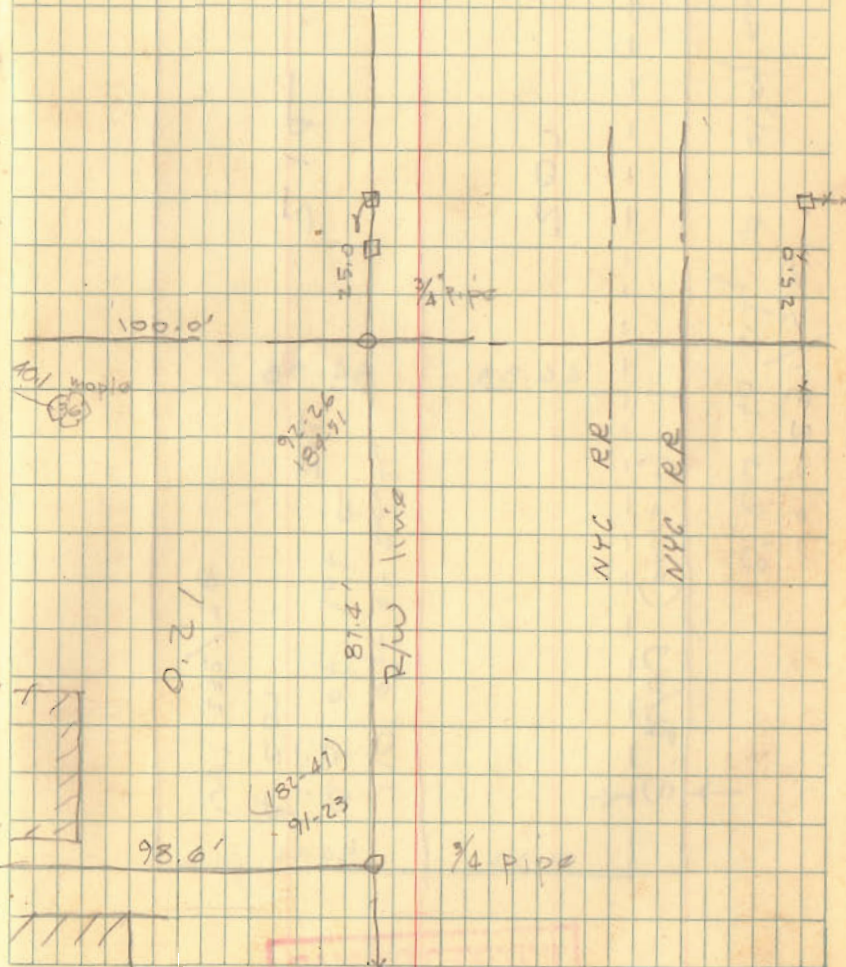 25.0
3/4" pipe
25.0
100.0'
40.1
36
maple
92-26
184-51
NYC RR
NYC RR
87.4'
R/W line
(182-47)
91-23
98.6'
3/4 pipe